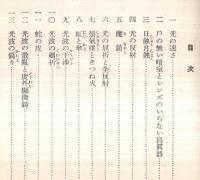 目次
一 光の速さ
二 戸の無い暗室とレンズのいらない寫眞器
三 日蝕月蝕
四 光の反射
五 魔鏡
六 光の屈折と全反射
七 蜃氣樓ときつね火
八 虹と暈
九 光波の干渉
一〇 光波の廻折
一一 蛇の皮
一二 光波の散亂と度外顯微鏡
一三 光波の偏り